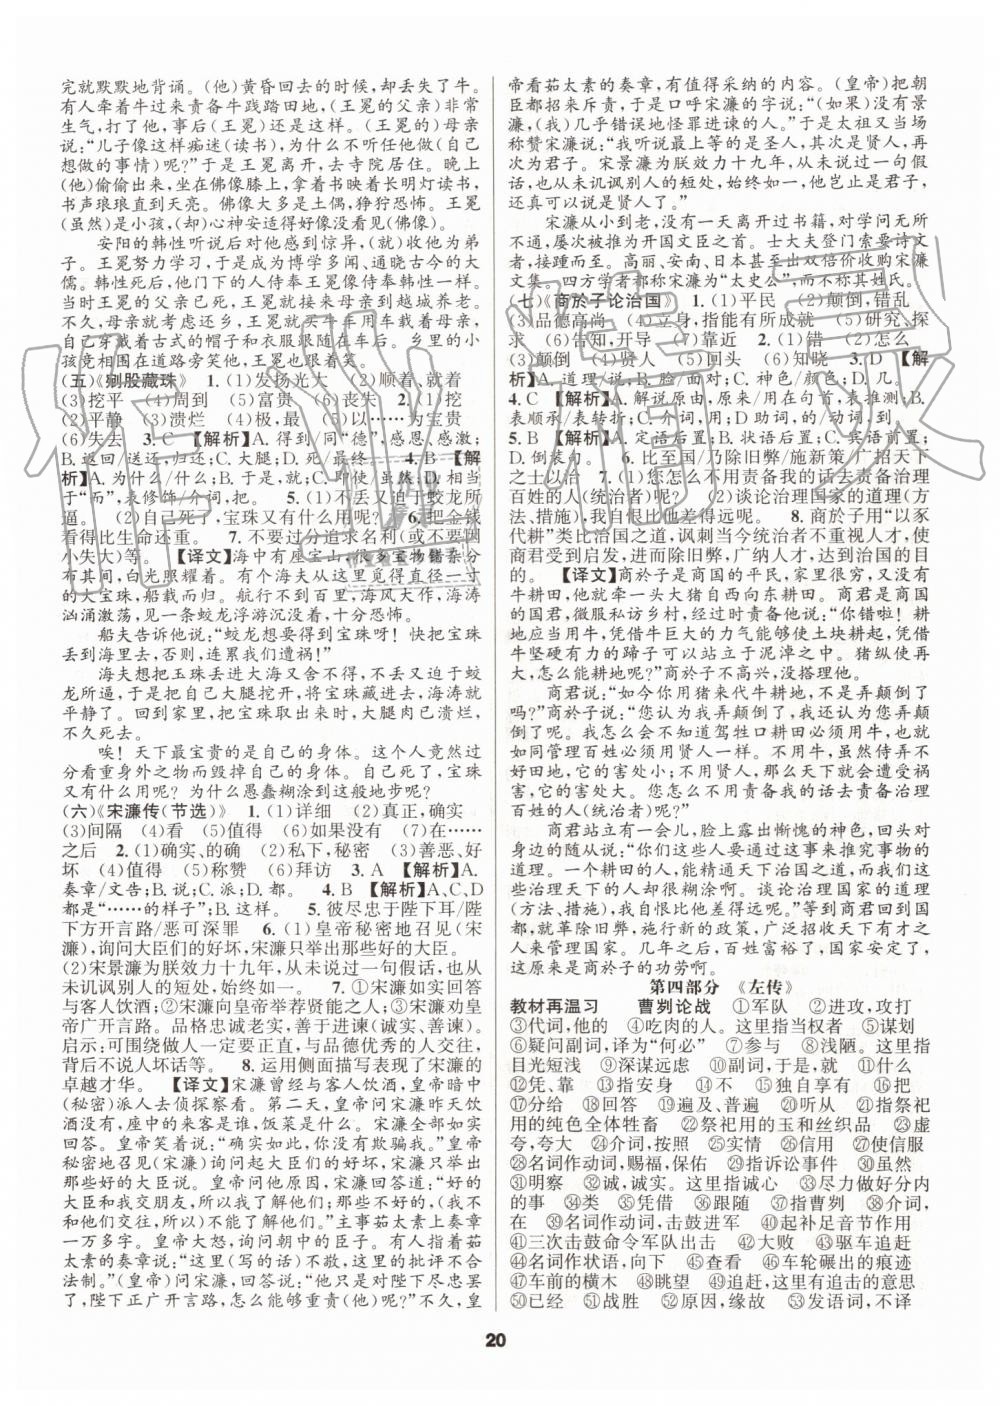 完就默默地背诵。(他)黄昏回去的时候,却丢失了牛。
有人牵着牛过来责备牛践踏田地,(王冕的父亲)非常
生气,打了他,事后(王冕)还是这样。(王冕的)母亲
说:“儿子像这样痴迷(读书),为什么不听任他做(自己
想做的事情)呢?”于是王冕离开,去寺院居住。晚上
(他)偷偷出来,坐在佛像膝上,拿着书映着长明灯读书,
书声琅琅直到天亮。佛像大多是土偶,狰狞恐怖。王冕
(虽然)是小孩,(却)心神安适得好像没看见(佛像)。
安阳的韩性听说后对他感到惊异,(就)收他为弟
子。王冕努力学习,于是成为博学多闻、通晓古今的大
儒。韩性死后,他的弟子像侍奉韩性一样侍奉王冕。
当时王冕的父亲已死,王冕就接来母亲到越城养老。
不久,母亲就考虑还乡,王冕就买牛来为母亲驾车,
自己穿戴着古式的帽子和衣服跟随在车后。乡里的小
孩竞相围在道路旁笑他,王冕也笑。
(五)《剜股藏珠》 1.(1)发扬光大 (2)顺着、就着
(3)挖平 (4)周到 (5)富贵 (6)丧失 2.(1)挖
(2)平静 (3)溃烂 (4)极,最 (5)以……为宝贵
(6)失去 3.C 【解析】A.得到/同“德”,感恩、感激;
B.返回/送还,归还;C.大腿;D.死/最终。 4.B 【解
析】A.为什么/什么;B.于是,就;C.被/自己;D.相当
于“而”,表修饰/介词,把。 5.(1)不丢又迫于蛟龙所
逼。 (2)自己死了,宝珠又有什么用呢? 6.把金钱
看得比生命还重。 7.不要过分追求名利(或不要因
小失大)等。 【译文】海中有座宝山,很多宝物错杂分
布其间,白光照耀着。有个海夫从这里觅得直径一寸
的大宝珠,船载而归。航行不到百里,海风大作,海涛
汹涌激荡,见一条蛟龙浮游沉没着,十分恐怖。
船夫告诉他说:“蛟龙想要得到宝珠呀!快把宝珠
丢到海里去,否则,连累我们遭祸!”
海夫想把玉珠丢进大海又舍不得,不丢又迫于蛟
龙所逼,于是就把自己大腿挖开,将宝珠藏进去,海涛就
平静了。回到家里,把宝珠取出来时,大腿肉已溃烂,
不久死去。
唉!天下最宝贵的是自己的身体。这个人竟然过
分看重身外之物而毁掉自己的身体。自己死了,宝珠
又有什么用呢?为什么愚蠢糊涂到这般地步呢?
(六)《宋濂传(节选)》 1.(1)详细 (2)真正,确实
(3)间隔 (4)看 (5)值得 (6)如果没有 (7)在……
之后 2.(1)确实、的确 (2)私下,秘密 (3)善恶、好
坏 (4)值得 (5)称赞 (6)拜访 3.A 【解析】A.
奏章/文告;B.说;C.派;D.都。 4.B 【解析】A、C、D
都是“……的样子”;B.这样。 5.彼尽忠于陛下耳/陛
下方开言路/恶可深罪 6.(1)皇帝秘密地召见(宋
濂),询问大臣们的好坏,宋濂只举出那些好的大臣。
(2)宋景濂为朕效力十九年,从未说过一句假话,也从
未讥讽别人的短处,始终如一。 7.①宋濂如实回答
与客人饮酒;②宋濂向皇帝举荐贤能之人;③宋濂劝皇
帝广开言路。品格忠诚老实,善于进谏(诚实、善谏)。
启示:可围绕做人一定要正直,与品德优秀的人交往,
背后不说人坏话等。 8.运用侧面描写表现了宋濂的
卓越才华。 【译文】宋濂曾经与客人饮酒,皇帝暗中
(秘密)派人去侦探察看。第二天,皇帝问宋濂昨天饮
酒没有,座中的来客是谁,饭菜是什么。宋濂全部如实
回答。皇帝笑着说:“确实如此,你没有欺骗我。”皇帝
秘密地召见(宋濂)询问起大臣们的好坏,宋濂只举出
那些好的大臣说说。皇帝问他原因,宋濂回答道:“好的
大臣和我交朋友,所以我了解他们;那些不好的,(我不
和他们交往,所以)不能了解他们。”主事茹太素上奏章
一万多字。皇帝大怒,询问朝中的臣子。有人指着茹
太素的奏章说:“这里(写的话)不敬,这里的批评不合
法制。”(皇帝)问宋濂,回答说:“他只是对陛下尽忠罢
了,陛下正广开言路,怎么能够重责(他)呢?”不久,皇
帝看茹太素的奏章,有值得采纳的内容。(皇帝)把朝
臣都招来斥责,于是口呼宋濂的字说:“(如果)没有景
濂,(我)几乎错误地怪罪进谏的人。”于是太祖又当场
称赞宋濂说:“我听说最上等的是圣人,其次是贤人,再
次为君子。宋景濂为朕效力十九年,从未说过一句假
话,也从未讥讽别人的短处,始终如一,他岂止是君子,
还真可以说是贤人了。”
宋濂从小到老,没有一天离开过书籍,对学问无所
不通,屡次被推为开国文臣之首。士大夫登门索要诗文
者,接踵而至。高丽、安南、日本甚至出双倍价钱收购宋濂
文集。四方学者都称宋濂为“太史公”,而不称其姓氏。
(七)《商於子论治国》 1.(1)平民 (2)颠倒,错乱
(3)品德高尚 (4)立身,指能有所成就 (5)研究、探
求 (6)告知,开导 (7)靠近 2.(1)错 (2)怎么
(3)颠倒 (4)贤人 (5)回头 (6)知晓 3.D 【解
析】A.道理/说;B.脸/面对;C.神色/颜色;D.几。
4.C 【解析】A.解说原由,原来/用在句首,表推测;B.
表顺承/表转折;C.介词,用;D.助词,的/动词,到。
5.B 【解析】A.定语后置;B.状语后置;C.宾语前置;
D.倒装句。 6.比至国/乃除旧弊/施新策/广招天下
之士以治 7.(1)您怎么不用责备我的话去责备治理
百姓的人(统治者)呢? (2)谈论治理国家的道理(方
法、措施),我自恨比他差得远呢。 8.商於子用“以豕
代耕”类比治国之道,讽刺当今统治者不重视人才,使
商君受到启发,进而除旧弊,广纳人才,达到治国的目
的。 【译文】商於子是商国的平民,家里很穷,又没有
牛耕田,他就牵着一头大猪自西向东耕田。商君是商国
的国君,微服私访乡村,经过时责备他说:“你错啦!耕
地应当用牛,凭借牛巨大的力气能够使土块耕起,凭借
牛坚硬有力的蹄子可以站立于泥淖之中。猪纵使再
大,怎么能耕地呢?”商於子不高兴,没搭理他。
商君说:“如今你用猪来代牛耕地,不是弄颠倒了
吗?”商於子说:“您认为我弄颠倒了,我还认为您弄颠
倒了呢。我怎么会不知道驾牲口耕田必须用牛,也就
如同管理百姓必须用贤人一样。不用牛,虽然侍弄不
好田地,它的害处小;不用贤人,那么天下就会遭受灾
祸,它的害处大。您怎么不用责备我的话去责备治理
百姓的人(统治者)呢?”
商君站立了一会儿,脸上露出惭愧的神色,回头对
身边的随从说:“你们这些人要通过这事来推究事物的
道理。一个耕田的人,能精通天下治国之道,而我们这
些治理天下的人却很糊涂啊。谈论治理国家的道理
(方法、措施),我自恨比他差得远呢。”等到商君回到国
都,就革除旧弊,施行新的政策,广泛招收天下有才之
人来管理国家。几年之后,百姓富裕了,国家安定了,
这是商於子的功劳啊。
第四部分 《左传》
教材再温习 曹刿论战 ①军队 ②进攻,攻打
③代词,他的 ④吃肉的人。这里指当权者 ⑤谋划
⑥疑问副词,译为“何必” ⑦参与 ⑧浅陋。这里指
目光短浅 ⑨深谋远虑 ⑩副词,于是,就 ⑪什么
⑫凭、靠 ⑬指安身 ⑭不 ⑮独自享有 ⑯把
⑰分给 ⑱回答 ⑲遍及、普遍 ⑳听从 ㉑指祭祀
用的纯色全体牲畜 ㉒祭祀用的玉和丝织品 ㉓虚
夸、夸大 ㉔介词,按照 ㉕实情 ㉖信用 ㉗使信服
㉘名词作动词,赐福,保佑 ㉙指诉讼事件 ㉚虽然
㉛明察 ㉜诚,诚实。这里指诚心 ㉝尽力做好分内
的事 ㉞类 ㉟凭借 ㊱跟随 ㊲指曹刿 ㊳介词,
在 ㊴名词作动词,击鼓进军 ㊵起补足音节作用
㊶三次击鼓命令军队出击 ㊷大败 ㊸驱车追赶
㊹名词作状语,向下 ㊺查看 ㊻车轮碾出的痕迹
㊼车前的横木 ㊽眺望 ㊾追赶,这里有追击的意思
㊿已经 51战胜 52原因,缘故 53发语词,不译
20